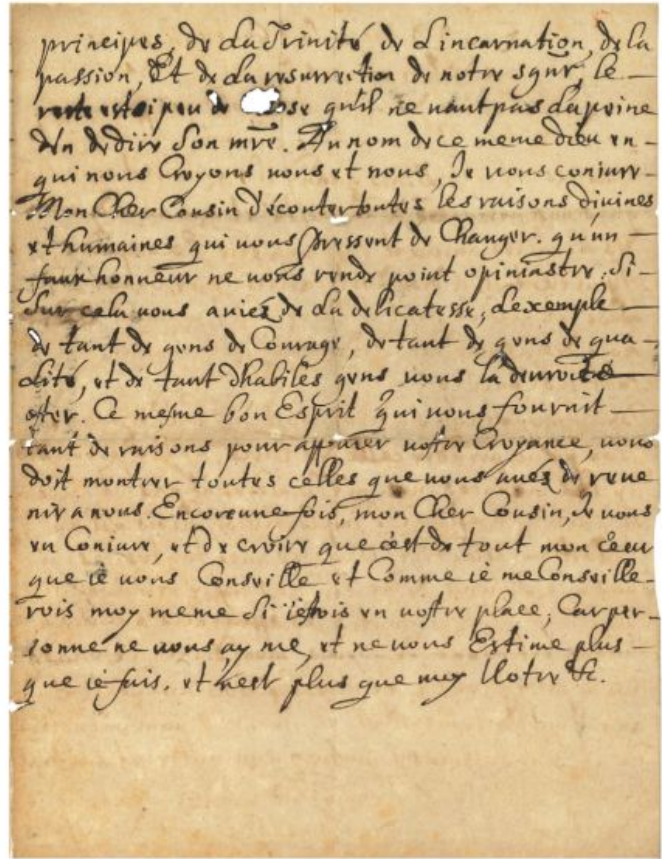 principes, de La Trinité de Lincarnation, de la
passion, Et de La resurrection de notre sgnr, le
reste est si peu de ose qu'il ne uaut pas La peine
den dedire Son mre. Au nom de ce meme dieu en-
qui nous Croyons uous et nous, Je uous coniure-
Mon Cher Cousin d'écouter toutes les raisons diuines
et humaines qui uous Pressent de Changer. qu'un-
faux honneur ne uous rende point opiniastre. Si-
Sur cela uous auiez de La delicatesse, Lexemple-
de tant de gens de Courage, de tant de gens de qua-
Lité, et de tant dhabiles gens uous la deuroit
oster. Ce mesme bon Esprit qui uous fournit-
tant de raisons pour appuier uostre Croyance, uous
doit montrer toutes celles que uous aués de reue
nir a nous. Encore une fois, mon Cher Cousin, Je uous
en Coniure, et de croire que c'est de tout mon Cœur
que ie uous Conseille et Comme ie me Conseille-
rois moy meme Si i'estois en uostre place, Car per-
sonne ne uous ayme, et ne uous Estime plus-
que ie fais, et n'est plus que moy Uotre &c.